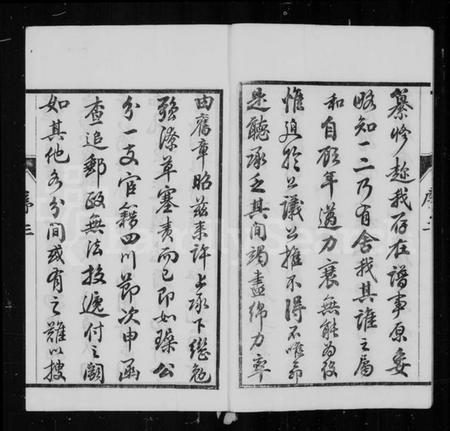 纂修趂我存在譜事原委
略知一二乃有舍我其誰之屬
和自顧年邁力衰無能為役
惟迫於公議公推不得不唯命
是聽承乏其間竭盡綿力率
由舊章昭茲來許上承下繼勉
強潦草塞責而已即如璪公
分一支官籍四川節次申函
查追郵政無法投遞付之闕
如其他各分間或有之難以搜
序三